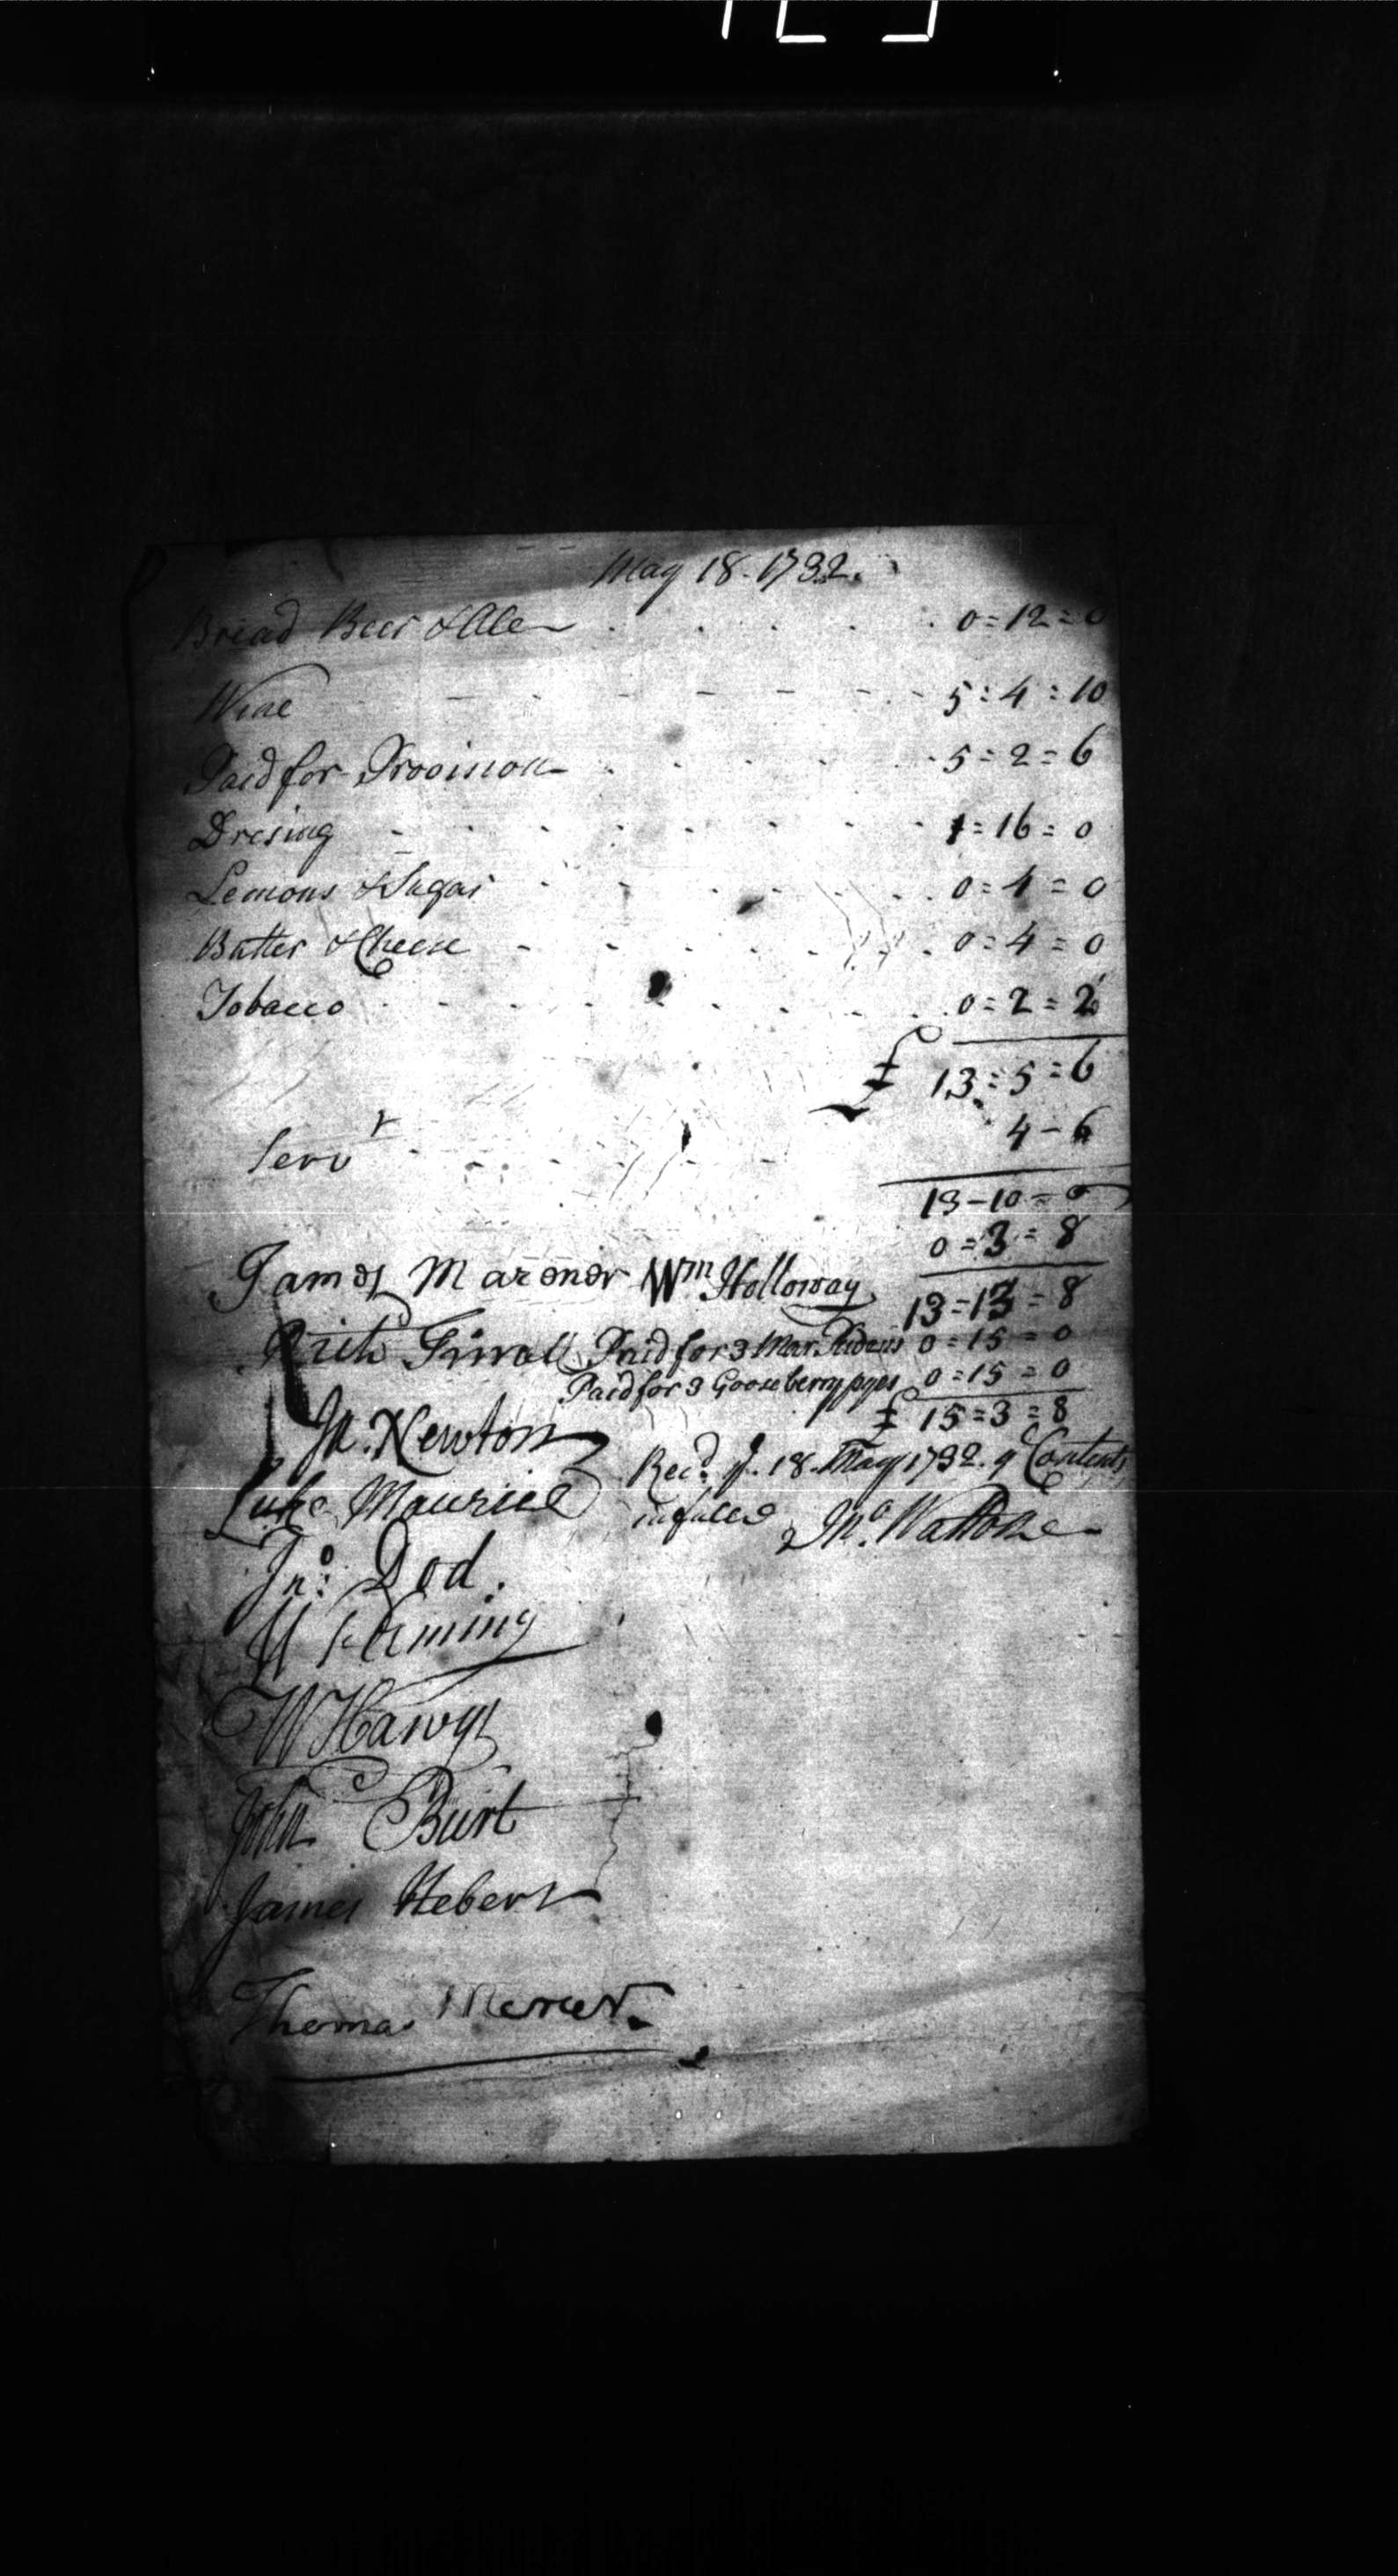 May 18. 1732.
Bread Beer & Ale 0=12=0
Wine 5:4:10
Paid for Provision 5=2=6
Dresing 1=16=0
Lemons & Sugar 0=4=0
Butter & Cheese 0=4=0
Tobacco 0=2=2
£ 13=5=6
Servr 4-6
13-10=0
0=3=8
James Marener Wm Holloway 13=13=8
Rich Paid for 3 Mar. Pudens 0=15=0
Paid for 3 Gooseberry pyes 0=15=0
£ 15=3=8
Jn. Newton
Recd. ye. 18. May 1732. ye Contents
Luke Maurice
in full Jno. Wattone
Jno: Dod.
Fleming
W Hawys
John Burt
James Hebert
Thomas Mercer.